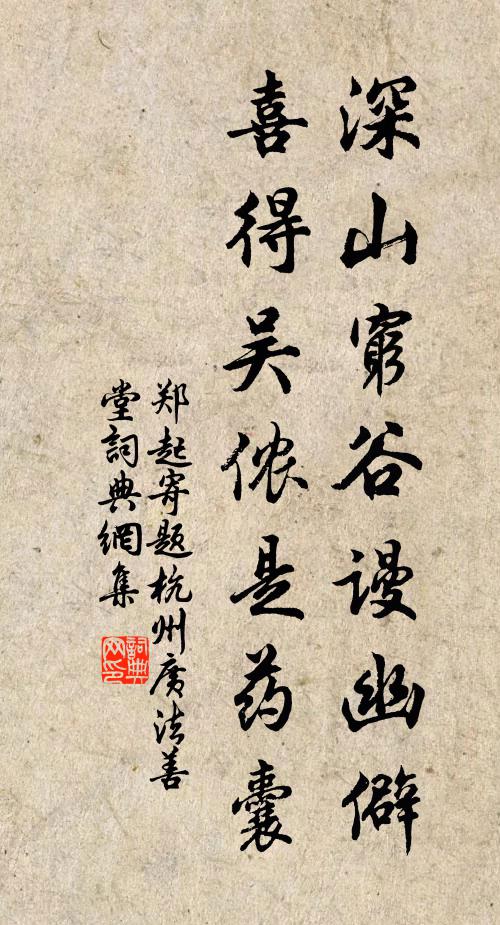 深山窮谷谩幽僻
喜得吴侬是药囊
郑起寄题杭州广法善
堂詞典網集
詞典
网印